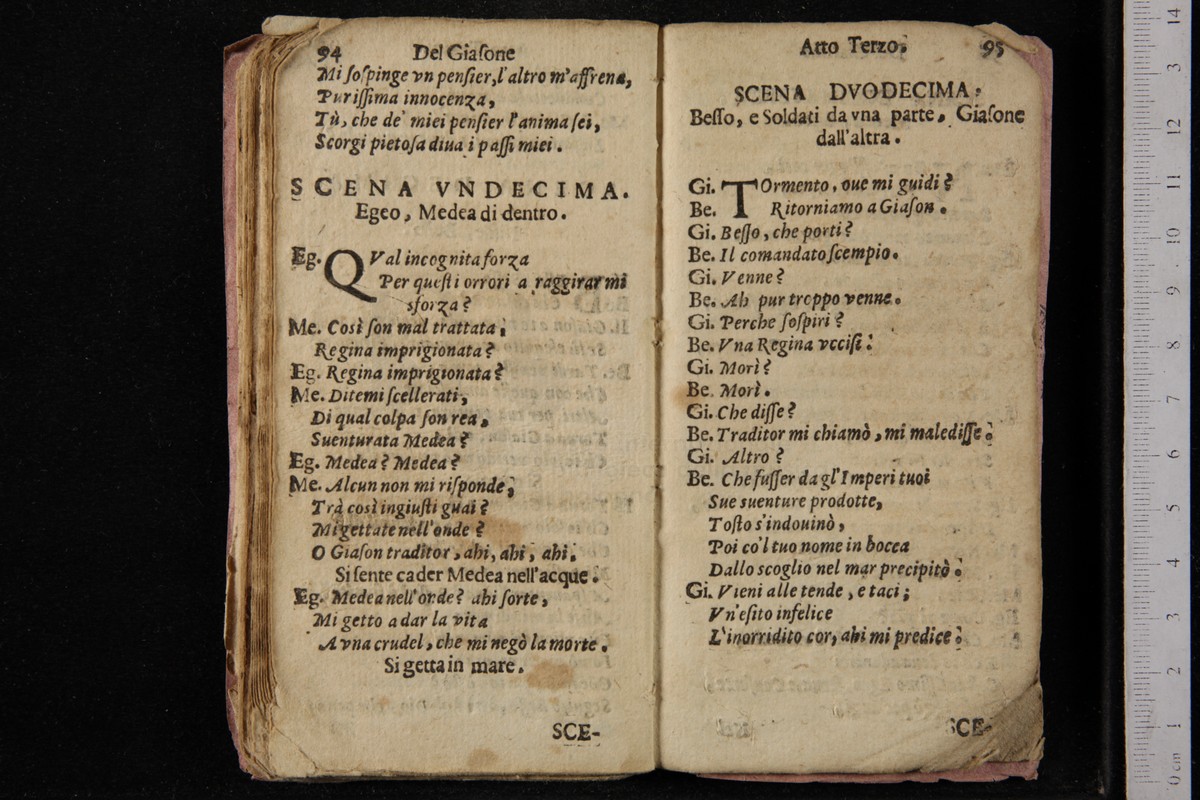 94 Del Giaſone
Mi ſoſpinge vn penſier, l'altro m'affrena,
Puriſſima innocenza,
Tù, che de' miei penſier l'anima ſei,
Scorgi pietoſa diua i paſſi miei.
SCENA VNDECIMA.
Egeo, Medea di dentro.
Eg. QVal incognita forza
Per queſti orrori a raggirar mi
sforza?
Me. Così ſon mal trattata;
Regina imprigionata?
Eg. Regina imprigionata?
Me. Ditemi ſcellerati,
Di qual colpa ſon rea,
Suenturata Medea?
Eg. Medea? Medea?
Me. Alcun non mi riſponde;
Trà così ingiuſti guai?
Mi gettate nell'onde?
O Giaſon traditor, ahi, ahi, ahi.
Si ſente cader Medea nell'acque.
Eg. Medea nell'onde? ahi ſorte,
Mi getto a dar la vita
A vna crudel, che mi negò la morte.
Si getta in mare.
SCE-
Atto Terzo. 95
SCENA DVODECIMA.
Beſſo, e Soldati da vna parte, Giaſone
dall'altra.
Gi. TOrmento, oue mi guidi?
Be. Ritorniamo a Giaſon.
Gi. Beſſo, che porti?
Be. Il comandato ſcempio.
Gi. Venne?
Be. Ah pur troppo venne.
Gi. Perche ſoſpiri?
Be. Vna Regina vcciſi.
Gi. Morì?
Be. Morì.
Gi. Che diſſe?
Be. Traditor mi chiamò, mi malediſſe.
Gi. Altro?
Be. Che fuſſer da gl'Imperi tuoi
Sue suenture prodotte,
Toſto s'indouinò,
Poi co'l tuo nome in bocca
Dallo scoglio nel mar precipitò.
Gi. Vieni alle tende, e taci;
Vn'eſito infelice
L'inorridito cor, ahi mi predice.
SCE-
0 cm 1 2 3 4 5 6 7 8 9 10 11 12 3 14